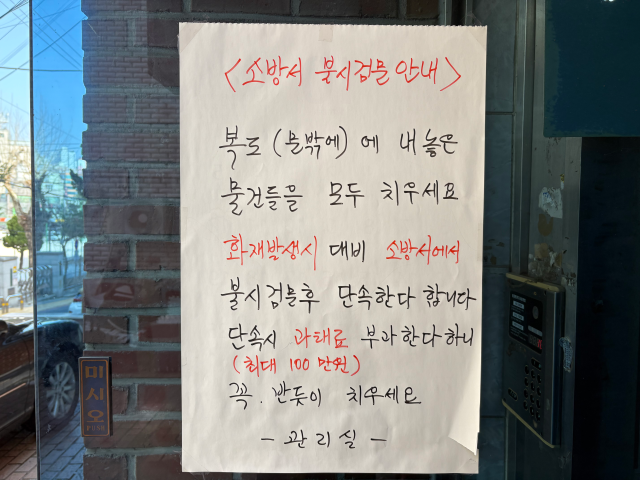 <소방서 불시검문 안내>
복도 (문밖에)에 내놓은
물건들을 모두 치우세요
화재발생시 대비 소방서에서
불시검문후 단속한다 합니다
단속시 과태료 부과한다하니
(최대 100만원)
꼭. 반듯이 치우세요
- 관리실 -
미시오